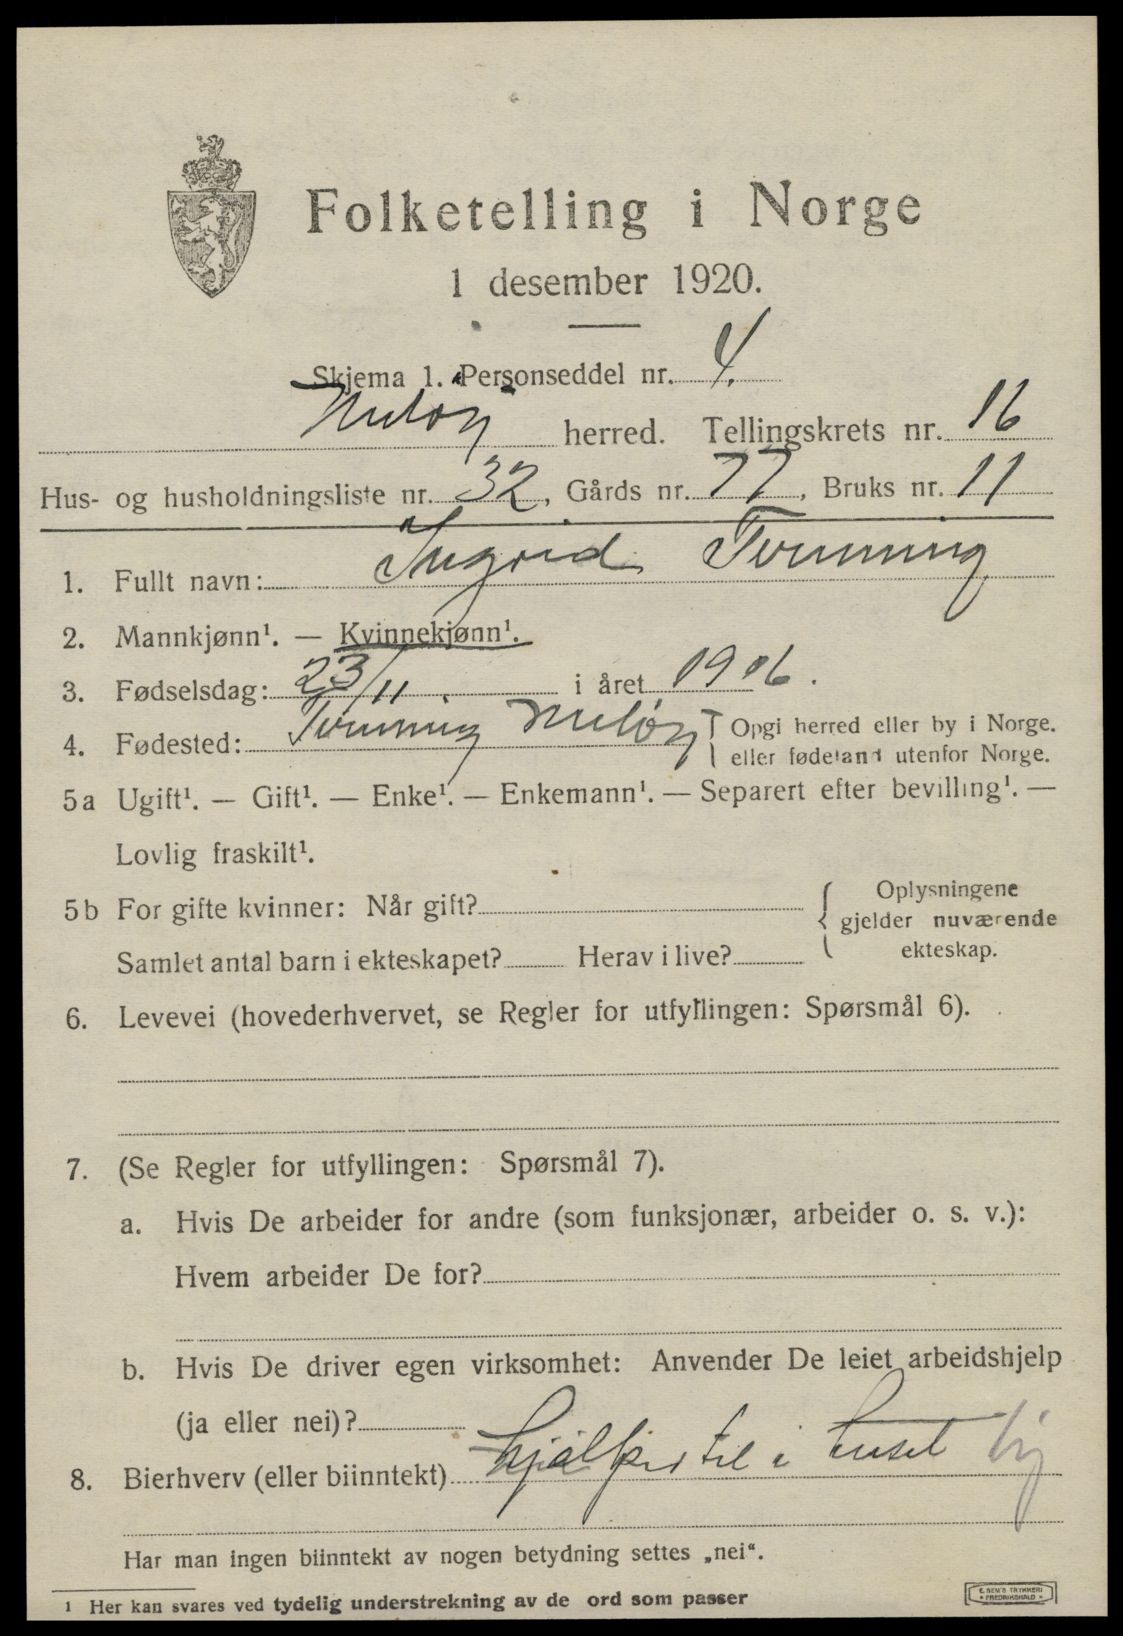 Folketelling i Norge
1 desember 1920.
Skjema 1. Personseddel nr. 4.
Meløy herred. Tellingskrets nr. 16
Hus- og husholdningsliste nr. 32, Gårds nr. 77, Bruks nr. 11
1. Fullt navn: Ingrid Torsning
2. Mannkjønn¹. — Kvinnekjønn¹.
3. Fødselsdag: 23/11. i året 1906.
4. Fødested: Meløy { Opgi herred eller by i Norge.
eller fødeland utenfor Norge.
5a Ugift¹. — Gift¹. — Enke¹. — Enkemann¹. — Separert efter bevilling¹. —
Lovlig fraskilt¹.
5b For gifte kvinner: Når gift? { Oplysningene
gjelder nuværende
ekteskap.
Samlet antal barn i ekteskapet? Herav i live?
6. Levevei (hovederhvervet, se Regler for utfyllingen: Spørsmål 6).
7. (Se Regler for utfyllingen: Spørsmål 7).
a. Hvis De arbeider for andre (som funksjonær, arbeider o. s. v.):
Hvem arbeider De for?
b. Hvis De driver egen virksomhet: Anvender De leiet arbeidshjelp
(ja eller nei)?
8. Bierhverv (eller biinntekt) hjælper til i huset hj
Har man ingen biinntekt av nogen betydning settes „nei“.
¹ Her kan svares ved tydelig understrekning av de ord som passer
E. SEM'S TRYKKERI
FREDRIKSHALD